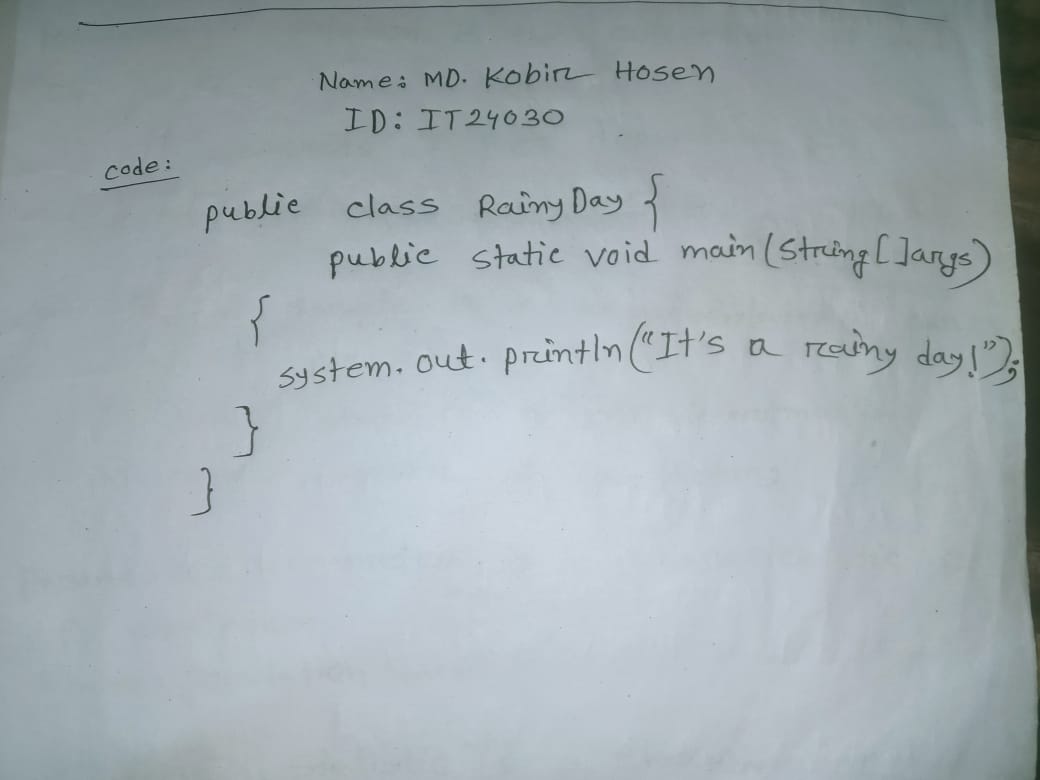 Name: MD. Kobir Hosen
ID: IT24030
code:
public class RainyDay {
public static void main(String[]args)
{
system.out.println("It's a rainy day!");
}
}